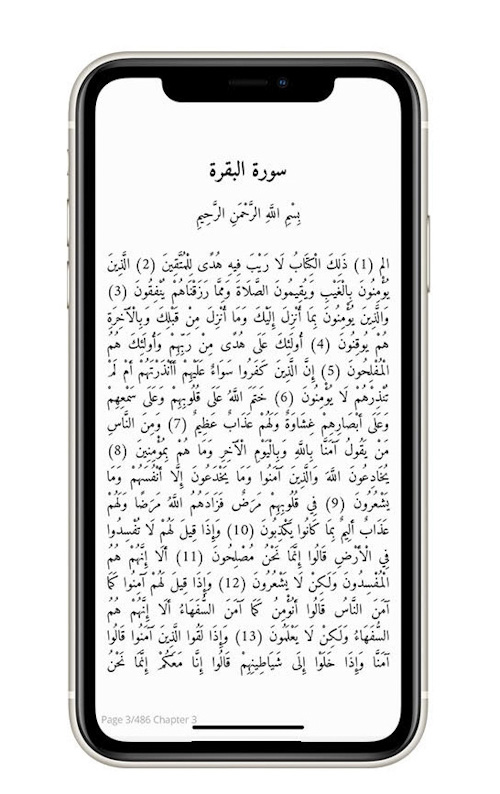 سورة البقرة
بِسْمِ اللَّهِ الرَّحْمَنِ الرَّحِيمِ
الم (1) ذَلِكَ الْكِتَابُ لَا رَيْبَ فِيهِ هُدًى لِلْمُتَّقِينَ (2) الَّذِينَ
يُؤْمِنُونَ بِالْغَيْبِ وَيُقِيمُونَ الصَّلَاةَ وَمِمَّا رَزَقْنَاهُمْ يُنْفِقُونَ (3)
وَالَّذِينَ يُؤْمِنُونَ بِمَا أُنْزِلَ إِلَيْكَ وَمَا أُنْزِلَ مِنْ قَبْلِكَ وَبِالْآخِرَةِ
هُمْ يُوقِنُونَ (4) أُولَئِكَ عَلَى هُدًى مِنْ رَبِّهِمْ وَأُولَئِكَ هُمُ
الْمُفْلِحُونَ (5) إِنَّ الَّذِينَ كَفَرُوا سَوَاءٌ عَلَيْهِمْ أَأَنْذَرْتَهُمْ أَمْ لَمْ
تُنْذِرْهُمْ لَا يُؤْمِنُونَ (6) خَتَمَ اللَّهُ عَلَى قُلُوبِهِمْ وَعَلَى سَمْعِهِمْ
وَعَلَى أَبْصَارِهِمْ غِشَاوَةٌ وَلَهُمْ عَذَابٌ عَظِيمٌ (7) وَمِنَ النَّاسِ
مَنْ يَقُولُ آمَنَّا بِاللَّهِ وَبِالْيَوْمِ الْآخِرِ وَمَا هُمْ بِمُؤْمِنِينَ (8)
يُخَادِعُونَ اللَّهَ وَالَّذِينَ آمَنُوا وَمَا يَخْدَعُونَ إِلَّا أَنْفُسَهُمْ وَمَا
يَشْعُرُونَ (9) فِي قُلُوبِهِمْ مَرَضٌ فَزَادَهُمُ اللَّهُ مَرَضًا وَلَهُمْ
عَذَابٌ أَلِيمٌ بِمَا كَانُوا يَكْذِبُونَ (10) وَإِذَا قِيلَ لَهُمْ لَا تُفْسِدُوا
فِي الْأَرْضِ قَالُوا إِنَّمَا نَحْنُ مُصْلِحُونَ (11) أَلَا إِنَّهُمْ هُمُ
الْمُفْسِدُونَ وَلَكِنْ لَا يَشْعُرُونَ (12) وَإِذَا قِيلَ لَهُمْ آمِنُوا كَمَا
آمَنَ النَّاسُ قَالُوا أَنُؤْمِنُ كَمَا آمَنَ السُّفَهَاءُ أَلَا إِنَّهُمْ هُمُ
السُّفَهَاءُ وَلَكِنْ لَا يَعْلَمُونَ (13) وَإِذَا لَقُوا الَّذِينَ آمَنُوا قَالُوا
آمَنَّا وَإِذَا خَلَوْا إِلَى شَيَاطِينِهِمْ قَالُوا إِنَّا مَعَكُمْ إِنَّمَا نَحْنُ
Page 3/486 Chapter 3